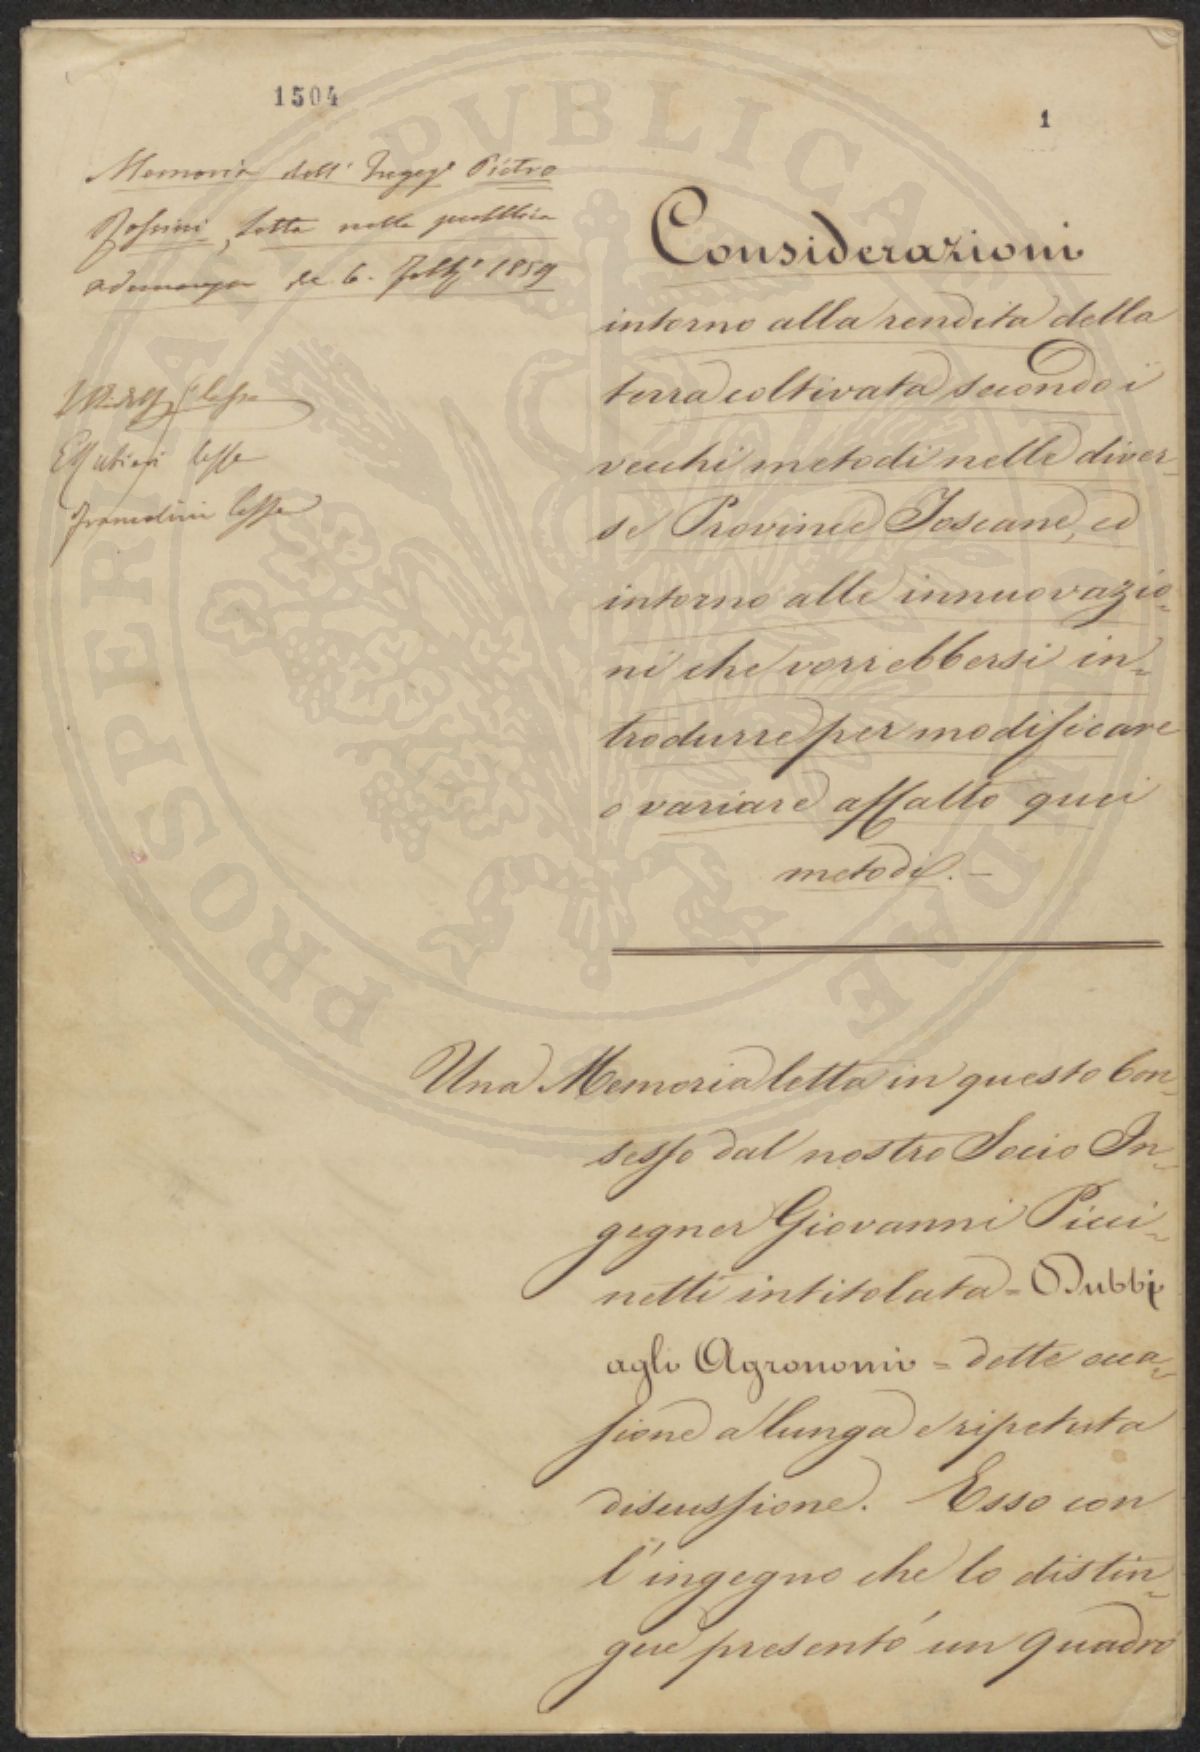 1504
1
Memoria dell' Ingeg.e Pietro
Rossini, Letta nella pubblica
adunanza de 6. Febb.o 1859
lesse
lesse
lesse
Considerazioni
intorno alla rendita della
terra coltivata secondo i
vecchi metodi nelle diver-
se Province Toscane, ed
intorno alle innuovazio-
ni che vorrebbersi in-
trodurre per modificare
o variare affatto quei
metodi. -
Una Memoria letta in questo Con-
sesso dal nostro Socio In-
gegner Giovanni Picci-
netti intitolata = Dubbj
agli Agronomi = dette occa-
sione a lunga e ripetuta
discussione. Esso con
l'ingegno che lo distin-
gue presentò un quadro
PROSPERITATI PUBLICAE AUGENDAE